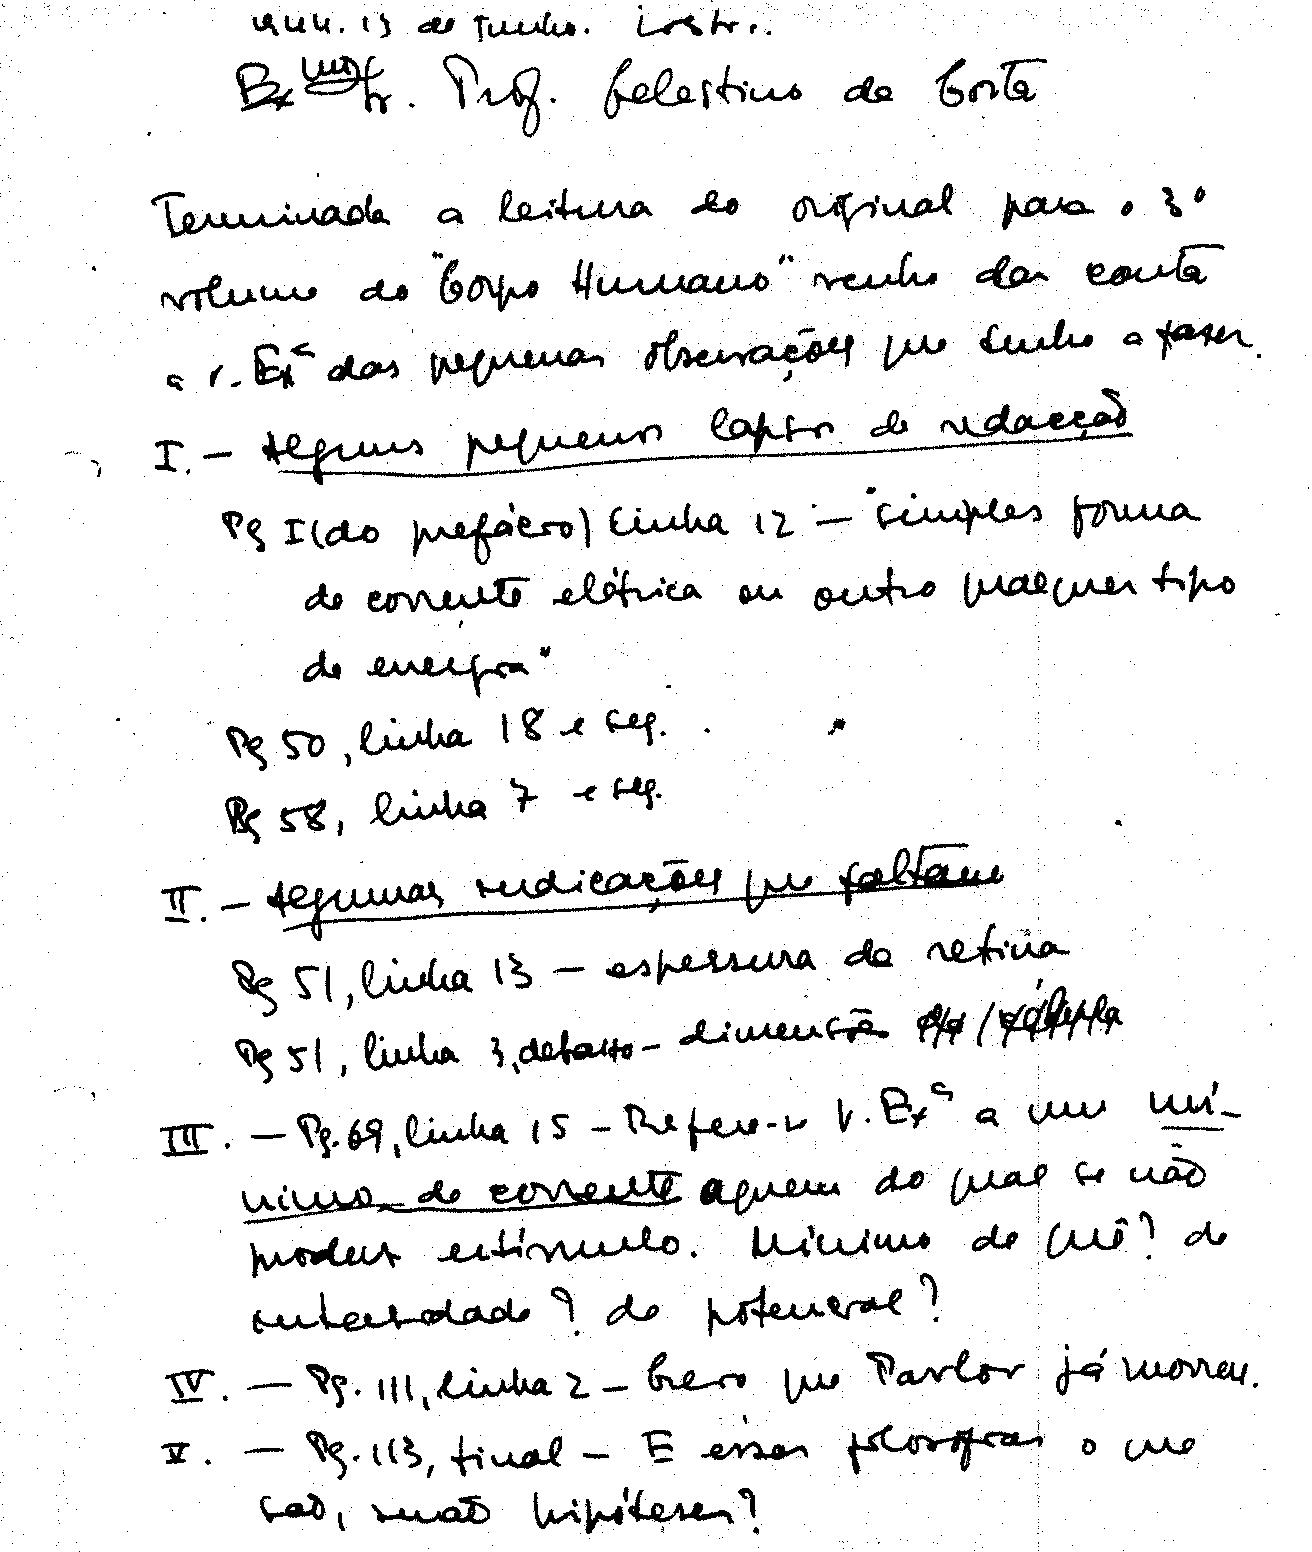 13 de Junho.
Ex.mo Sr. Prof. Celestino da Costa
Terminada a leitura do original para o 3º
volume do "Corpo Humano" venho dar conta
a V. Exª das pequenas observações que tenho a fazer.
I. - Alguns pequenos lapsos de redacção
Pg I (do prefácio) linha 12 - "simples forma
de corrente elétrica ou outro qualquer tipo
de energia"
Pg 50, linha 18 e seg.
Pg 58, linha 7 e seg.
II. - Algumas indicações que faltam
Pg 51, linha 13 - espessura da retina
Pg 51, linha 3, debaixo - dimensão
III. - Pg. 69, linha 15 - Refere-se V. Exª a um mí-
nimo de corrente aquem do qual se não
produz estímulo. Mínimo de quê? de
intensidade? de potencial?
IV. - Pg. 111, linha 2 - Creio que Pavlov já morreu.
V. - Pg. 113, final - E essas filosofias o que
são, senão hipóteses?